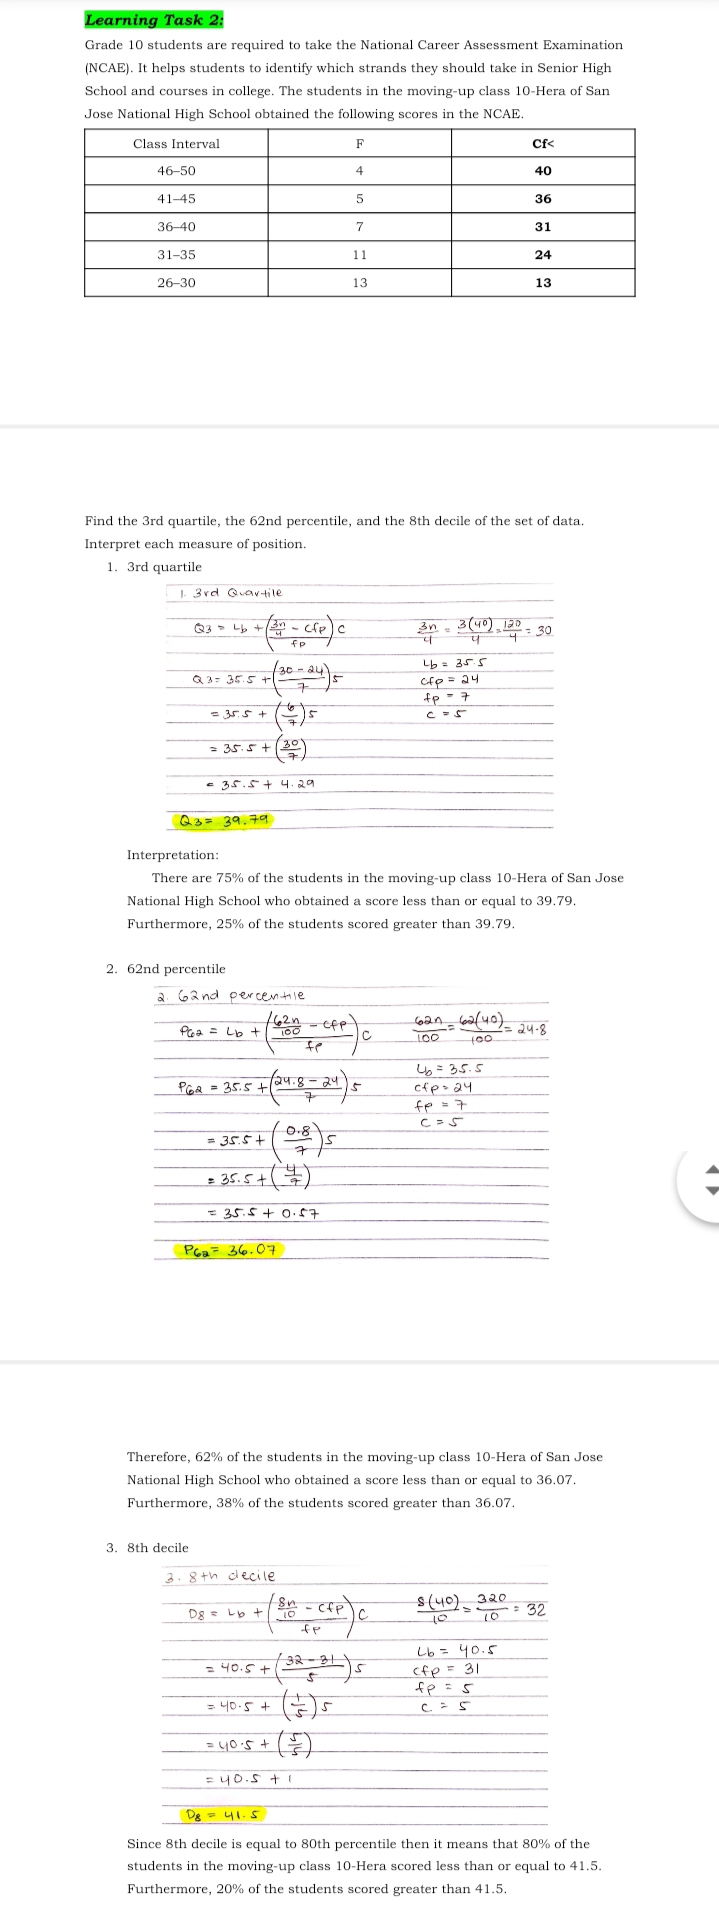 Learning Task 2:
Grade 10 students are required to take the National Career Assessment Examination
(NCAE). It helps students to identify which strands they should take in Senior High
School and courses in college. The students in the moving-up class 10-Hera of San
Jose National High School obtained the following scores in the NCAE.
Class Interval F Cf<
46–50 4 40
41–45 5 36
36–40 7 31
31–35 11 24
26–30 13 13
Find the 3rd quartile, the 62nd percentile, and the 8th decile of the set of data.
Interpret each measure of position.
1. 3rd quartile
1. 3rd Quartile
Q3 = Lb + (3n/4 - cfp / fp) c
3n/4 = 3(40)/4 = 120/4 = 30
Q3 = 35.5 + (30 - 24 / 7) 5
Lb = 35.5
cfp = 24
fp = 7
c = 5
= 35.5 + (6/7) 5
= 35.5 + (30/7)
= 35.5 + 4.29
Q3 = 39.79
Interpretation:
There are 75% of the students in the moving-up class 10-Hera of San Jose
National High School who obtained a score less than or equal to 39.79.
Furthermore, 25% of the students scored greater than 39.79.
2. 62nd percentile
2. 62nd percentile
P62 = Lb + (62n/100 - cfp / fp) c
62n/100 = 62(40)/100 = 24.8
P62 = 35.5 + (24.8 - 24 / 7) 5
Lb = 35.5
cfp = 24
fp = 7
c = 5
= 35.5 + (0.8/7) 5
= 35.5 + (4/7)
= 35.5 + 0.57
P62 = 36.07
Therefore, 62% of the students in the moving-up class 10-Hera of San Jose
National High School who obtained a score less than or equal to 36.07.
Furthermore, 38% of the students scored greater than 36.07.
3. 8th decile
3. 8th decile
D8 = Lb + (8n/10 - cfp / fp) c
8(40)/10 = 320/10 = 32
= 40.5 + (32 - 31 / 5) 5
Lb = 40.5
cfp = 31
fp = 5
c = 5
= 40.5 + (1/5) 5
= 40.5 + (5/5)
= 40.5 + 1
D8 = 41.5
Since 8th decile is equal to 80th percentile then it means that 80% of the
students in the moving-up class 10-Hera scored less than or equal to 41.5.
Furthermore, 20% of the students scored greater than 41.5.